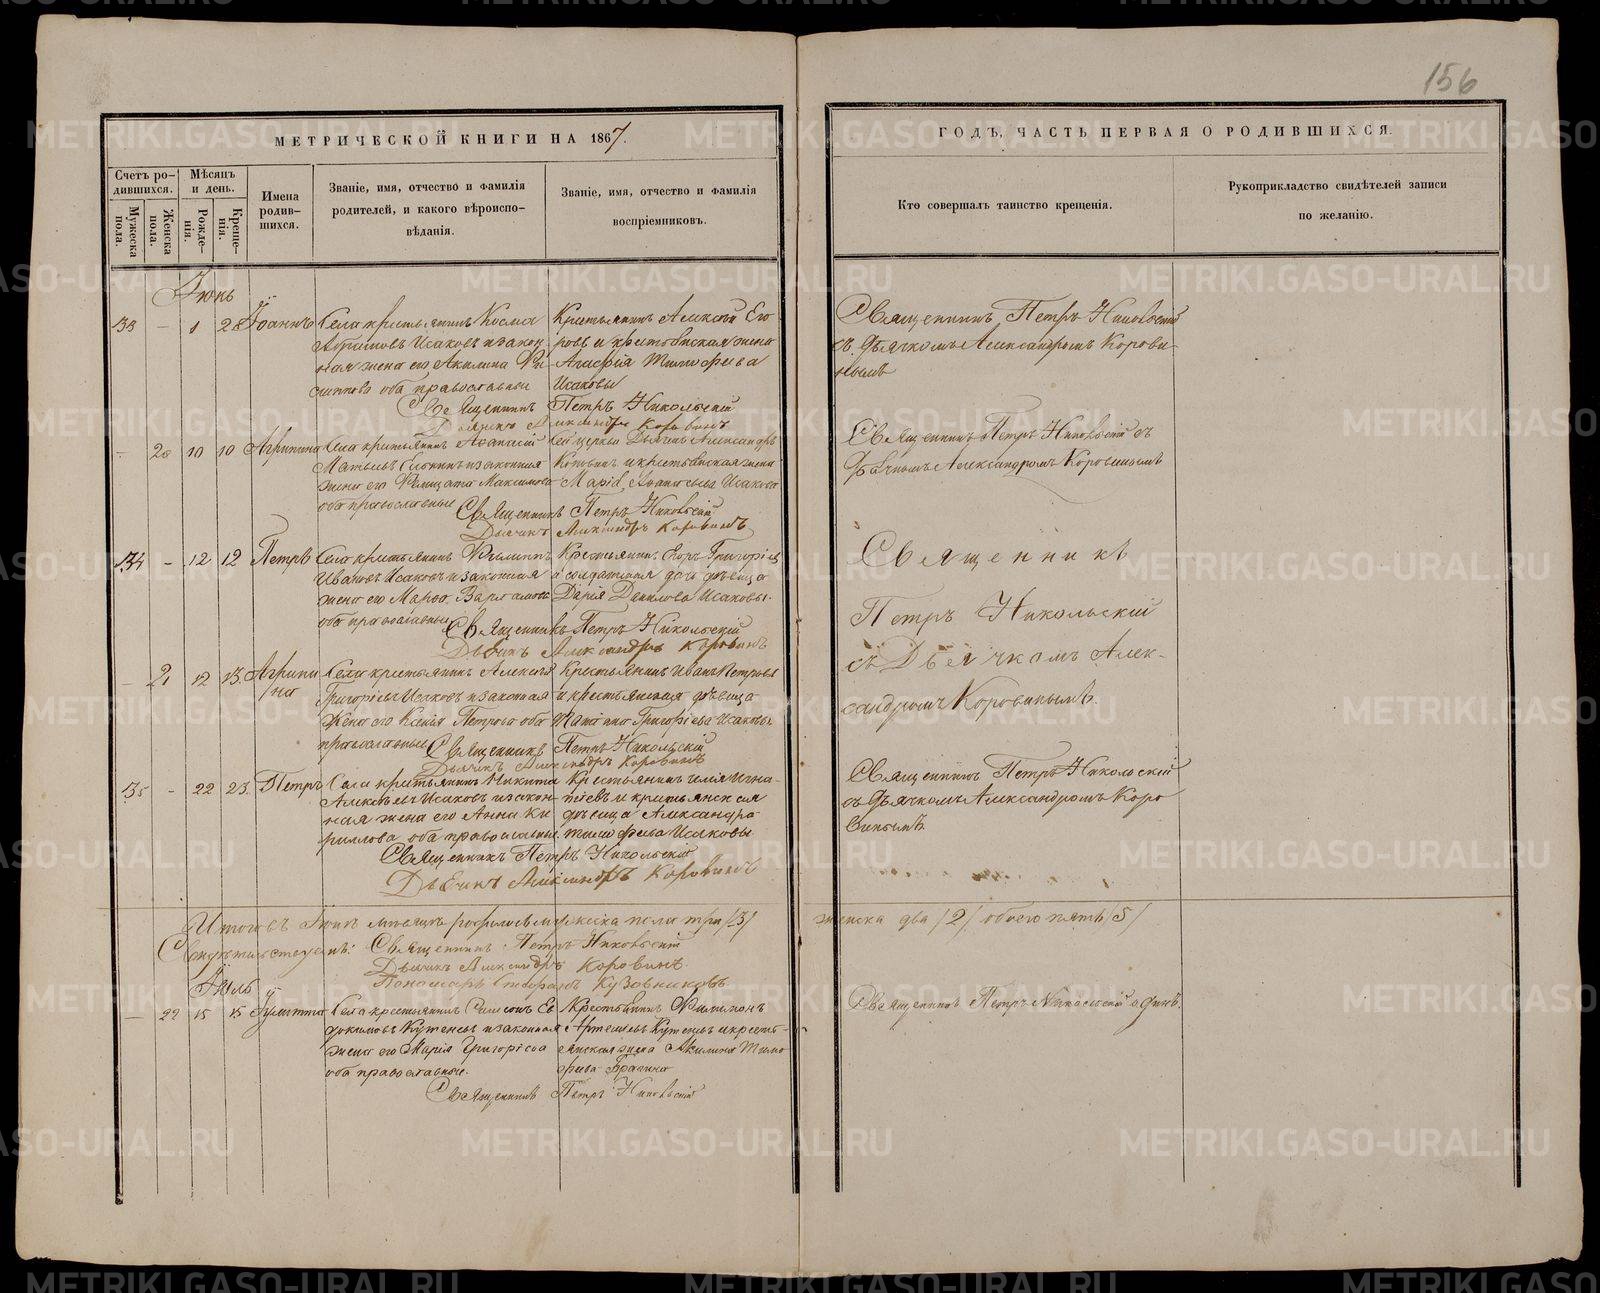 156
МЕТРИЧЕСКОЙ КНИГИ НА 1867.
ГОДЪ, ЧАСТЬ ПЕРВАЯ О РОДИВШИХСЯ.
Счетъ ро-
дившихся.
Мужеска
пола.
Женска
пола.
Мѣсяцъ
и день.
Рожде-
нія.
Креще-
нія.
Имена
родив-
шихся.
Званіе, имя, отчество и фамилія
родителей, и какого вѣроиспо-
вѣданія.
Званіе, имя, отчество и фамилія
воспріемниковъ.
Кто совершалъ таинство крещенія.
Рукоприкладство свидѣтелей записи
по желанію.
Іюнь
33 - 1 28 Іоаннъ
Села крестьянинъ Козма
Исаковъ и закон
ная жена его Акилина
оба православные
Крестьянинъ Алексѣй Его
ровъ и крестьянская жена
Агафія Тимофѣева
Исаковы
Священникъ Петръ Никольскій
Дьячекъ Александръ Коровинъ
Священникъ Петръ Никольскій
съ дьячкомъ Александромъ Корови-
нымъ
- 20 10 10 Агрипина
Села крестьянинъ Афанасій
и законная
жена его Максимова
оба православные
Дьячекъ Александръ
и крестьянская жена
Исакова
Священникъ Петръ Никольскій
Дьячекъ Александръ Коровинъ
Священникъ Петръ Никольскій съ
Дьячкомъ Александромъ Коровинымъ
34 - 12 12 Петръ
Села крестьянинъ Филиппъ
Ивановъ Исаковъ и законная
жена его Марфа
оба православные
Крестьянинъ Егоръ Григорьевъ
и солдатская дочь дѣвица
Дарія Данилова Исаковы.
Священникъ Петръ Никольскій
Дьячекъ Александръ Коровинъ
Священникъ
Петръ Никольскій
съ Дьячкомъ Алек-
сандромъ Коровинымъ.
- 21 12 13. Агрипи
на
Села крестьянинъ Алексѣй
Григорьевъ Исаковъ и законная
жена его Ксенія Петрова оба
православные
Крестьянинъ Иванъ Петровъ
и крестьянская дѣвица
Татіана Григорьева Исаковы
Священникъ Петръ Никольскій
Дьячекъ Александръ Коровинъ
35 - 22 23. Петръ
Села крестьянинъ Никита
Алексѣевъ Исаковъ и закон-
ная жена его Анна Ки
риллова оба православные
Крестьянинъ Илія Игна-
тіевъ и крестьянская
дѣвица Александра
Тимофѣева Исаковы
Священникъ Петръ Никольскій
Дьячекъ Александръ Коровинъ
Священникъ Петръ Никольскій
съ дьячкомъ Александромъ Коро
винымъ
Итого въ Іюнѣ мѣсяцѣ родилось мужеска пола три /3/ женска два /2/ обоего пять /5/
Свидѣтельствуемъ: Священникъ Петръ Никольскій
Дьячекъ Александръ Коровинъ
Пономарь Стефанъ Кузовниковъ
Іюль
- 22 15 15 Іулитта
Села крестьянинъ Самсонъ Ев
докимовъ Кутеневъ и законная
жена его Марія Григорьева
оба православные.
Крестьянинъ Филимонъ
Артемьевъ Кутеневъ и кресть-
янская жена Акилина Тимо
фѣева Брагина
Священникъ Петръ Никольскій
Священникъ Петръ Никольскій одинъ.
METRIKI.GASO-URAL.RU